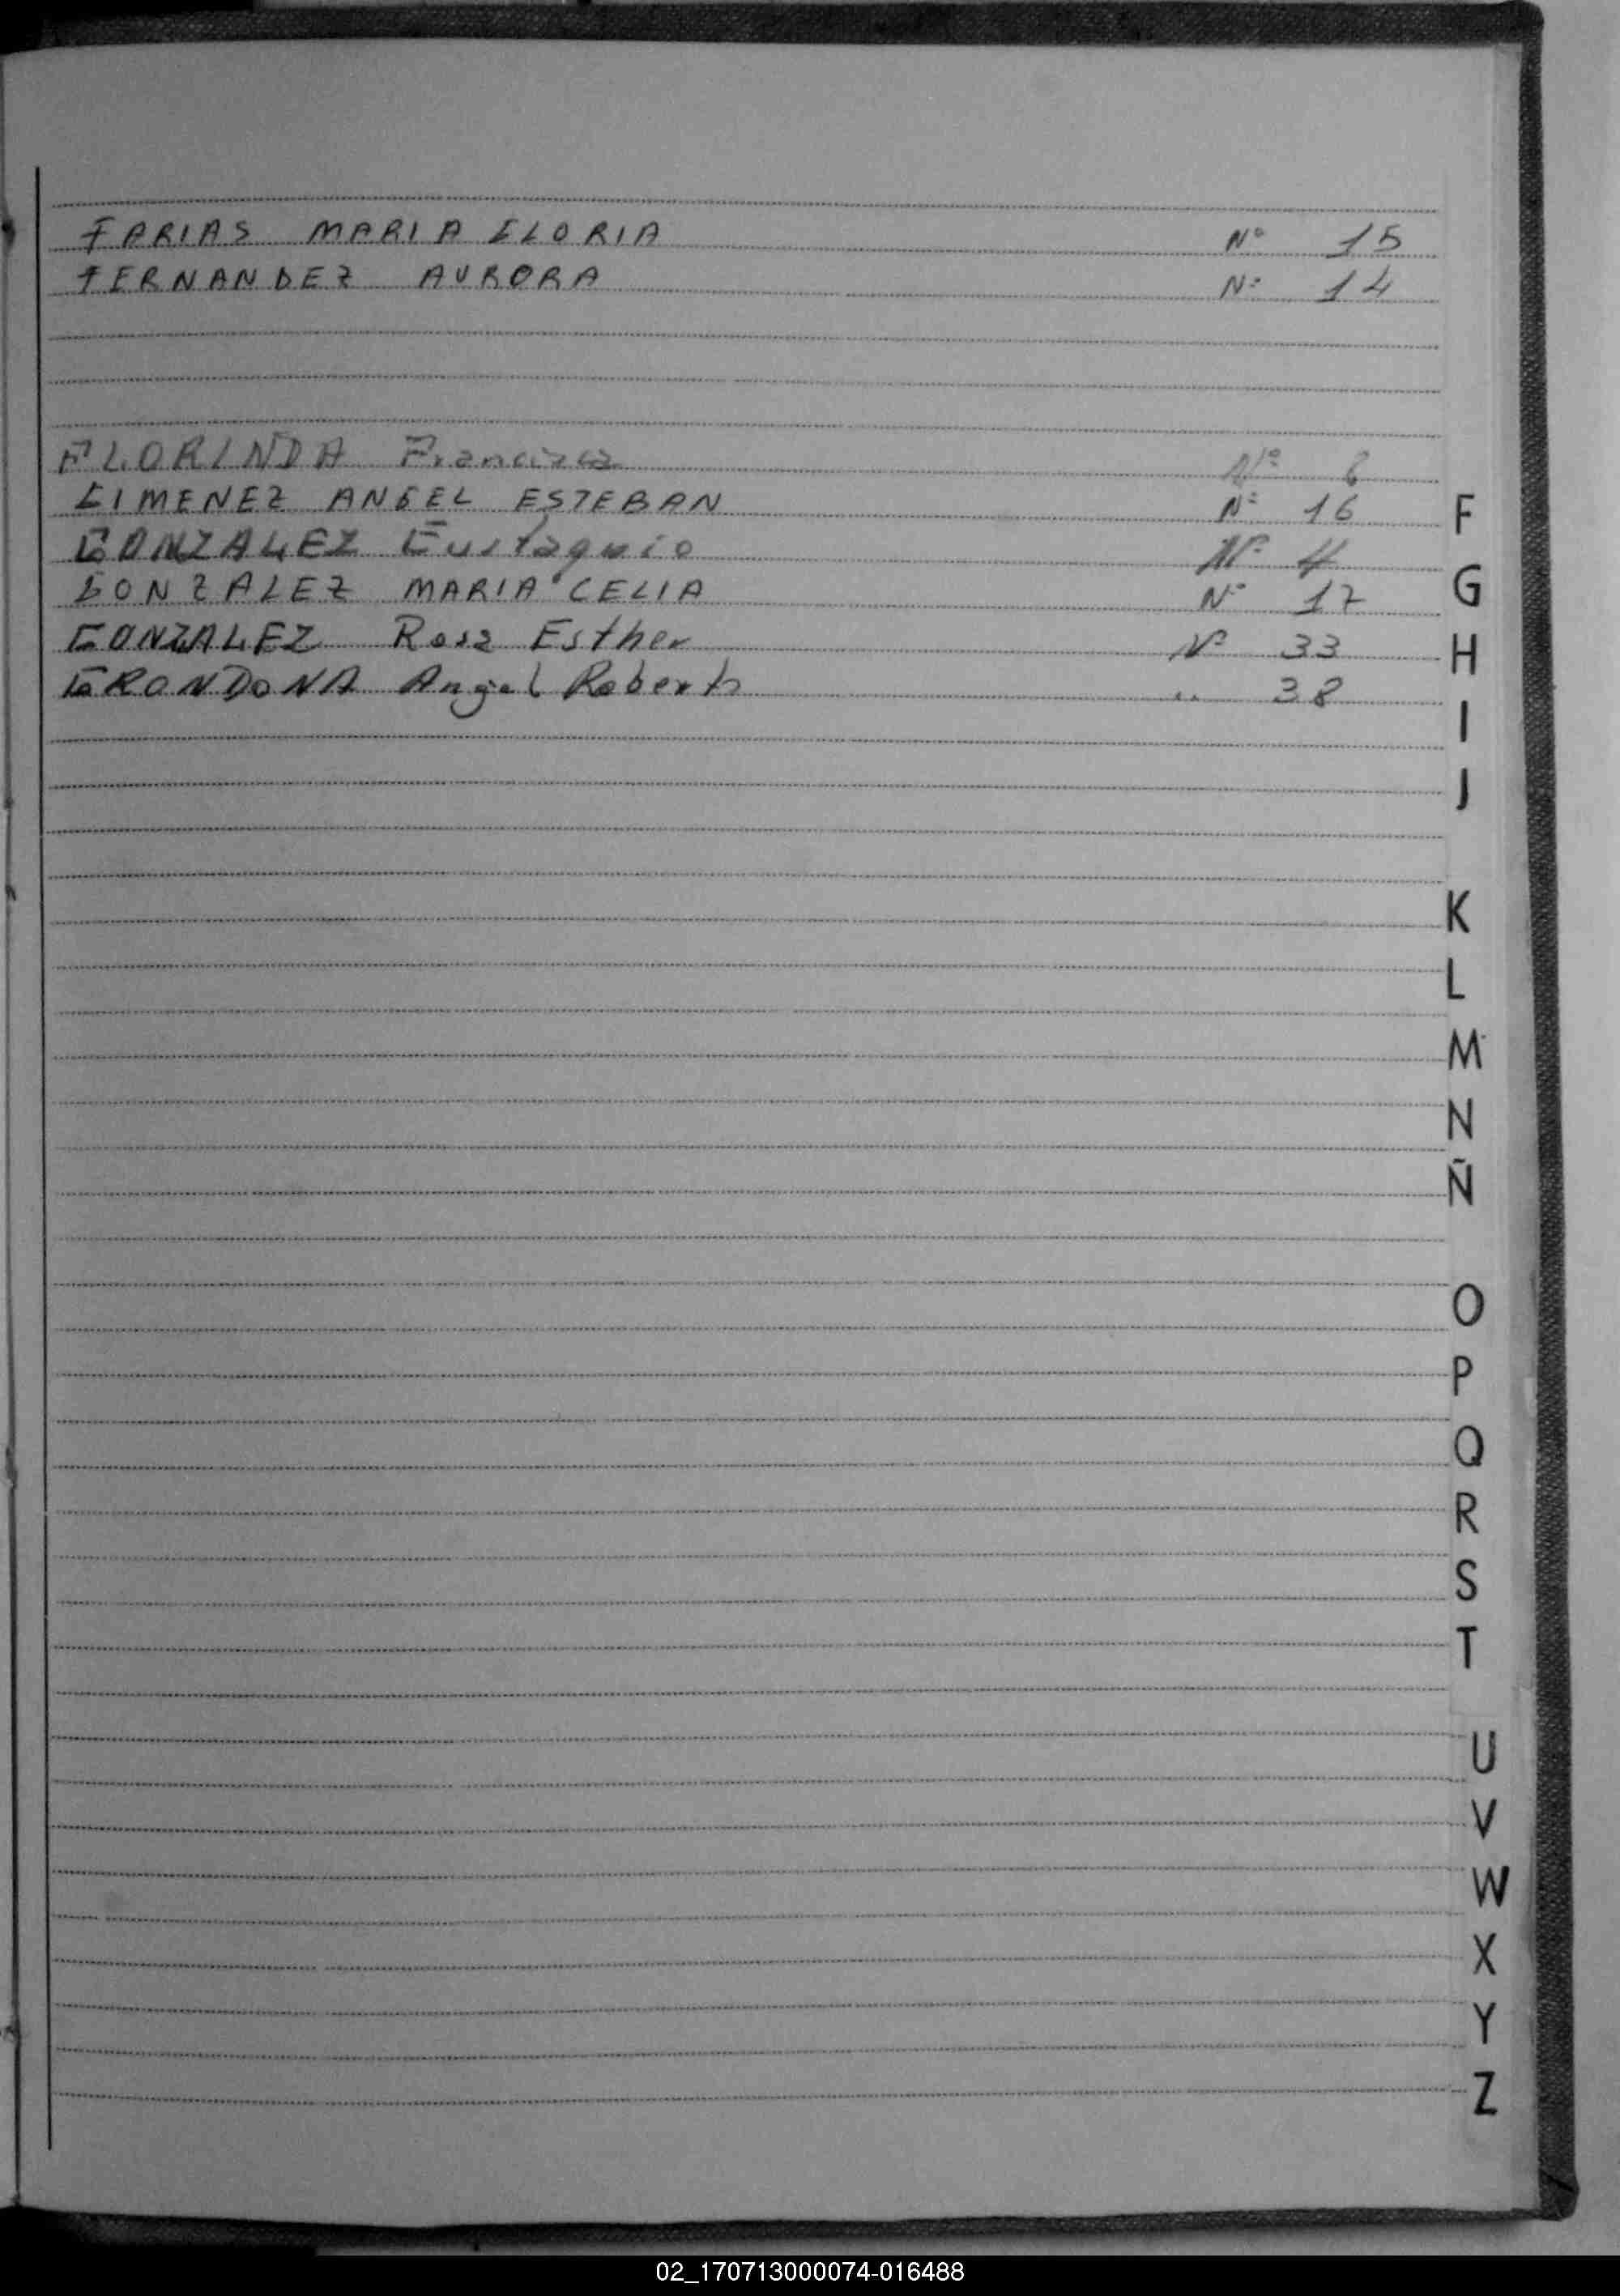 FARIAS MARIA GLORIA Nº 15
FERNANDEZ AURORA Nº 14
FLORINDA Francisca Nº 6
GIMENEZ ANGEL ESTEBAN Nº 16
GONZALEZ Eustaquio Nº 4
GONZALEZ MARIA CELIA Nº 17
GONZALEZ Rosa Esther Nº 33
GRONDONA Angel Roberto " 38
F
G
H
I
J
K
L
M
N
Ñ
O
P
Q
R
S
T
U
V
W
X
Y
Z
02_170713000074-016488